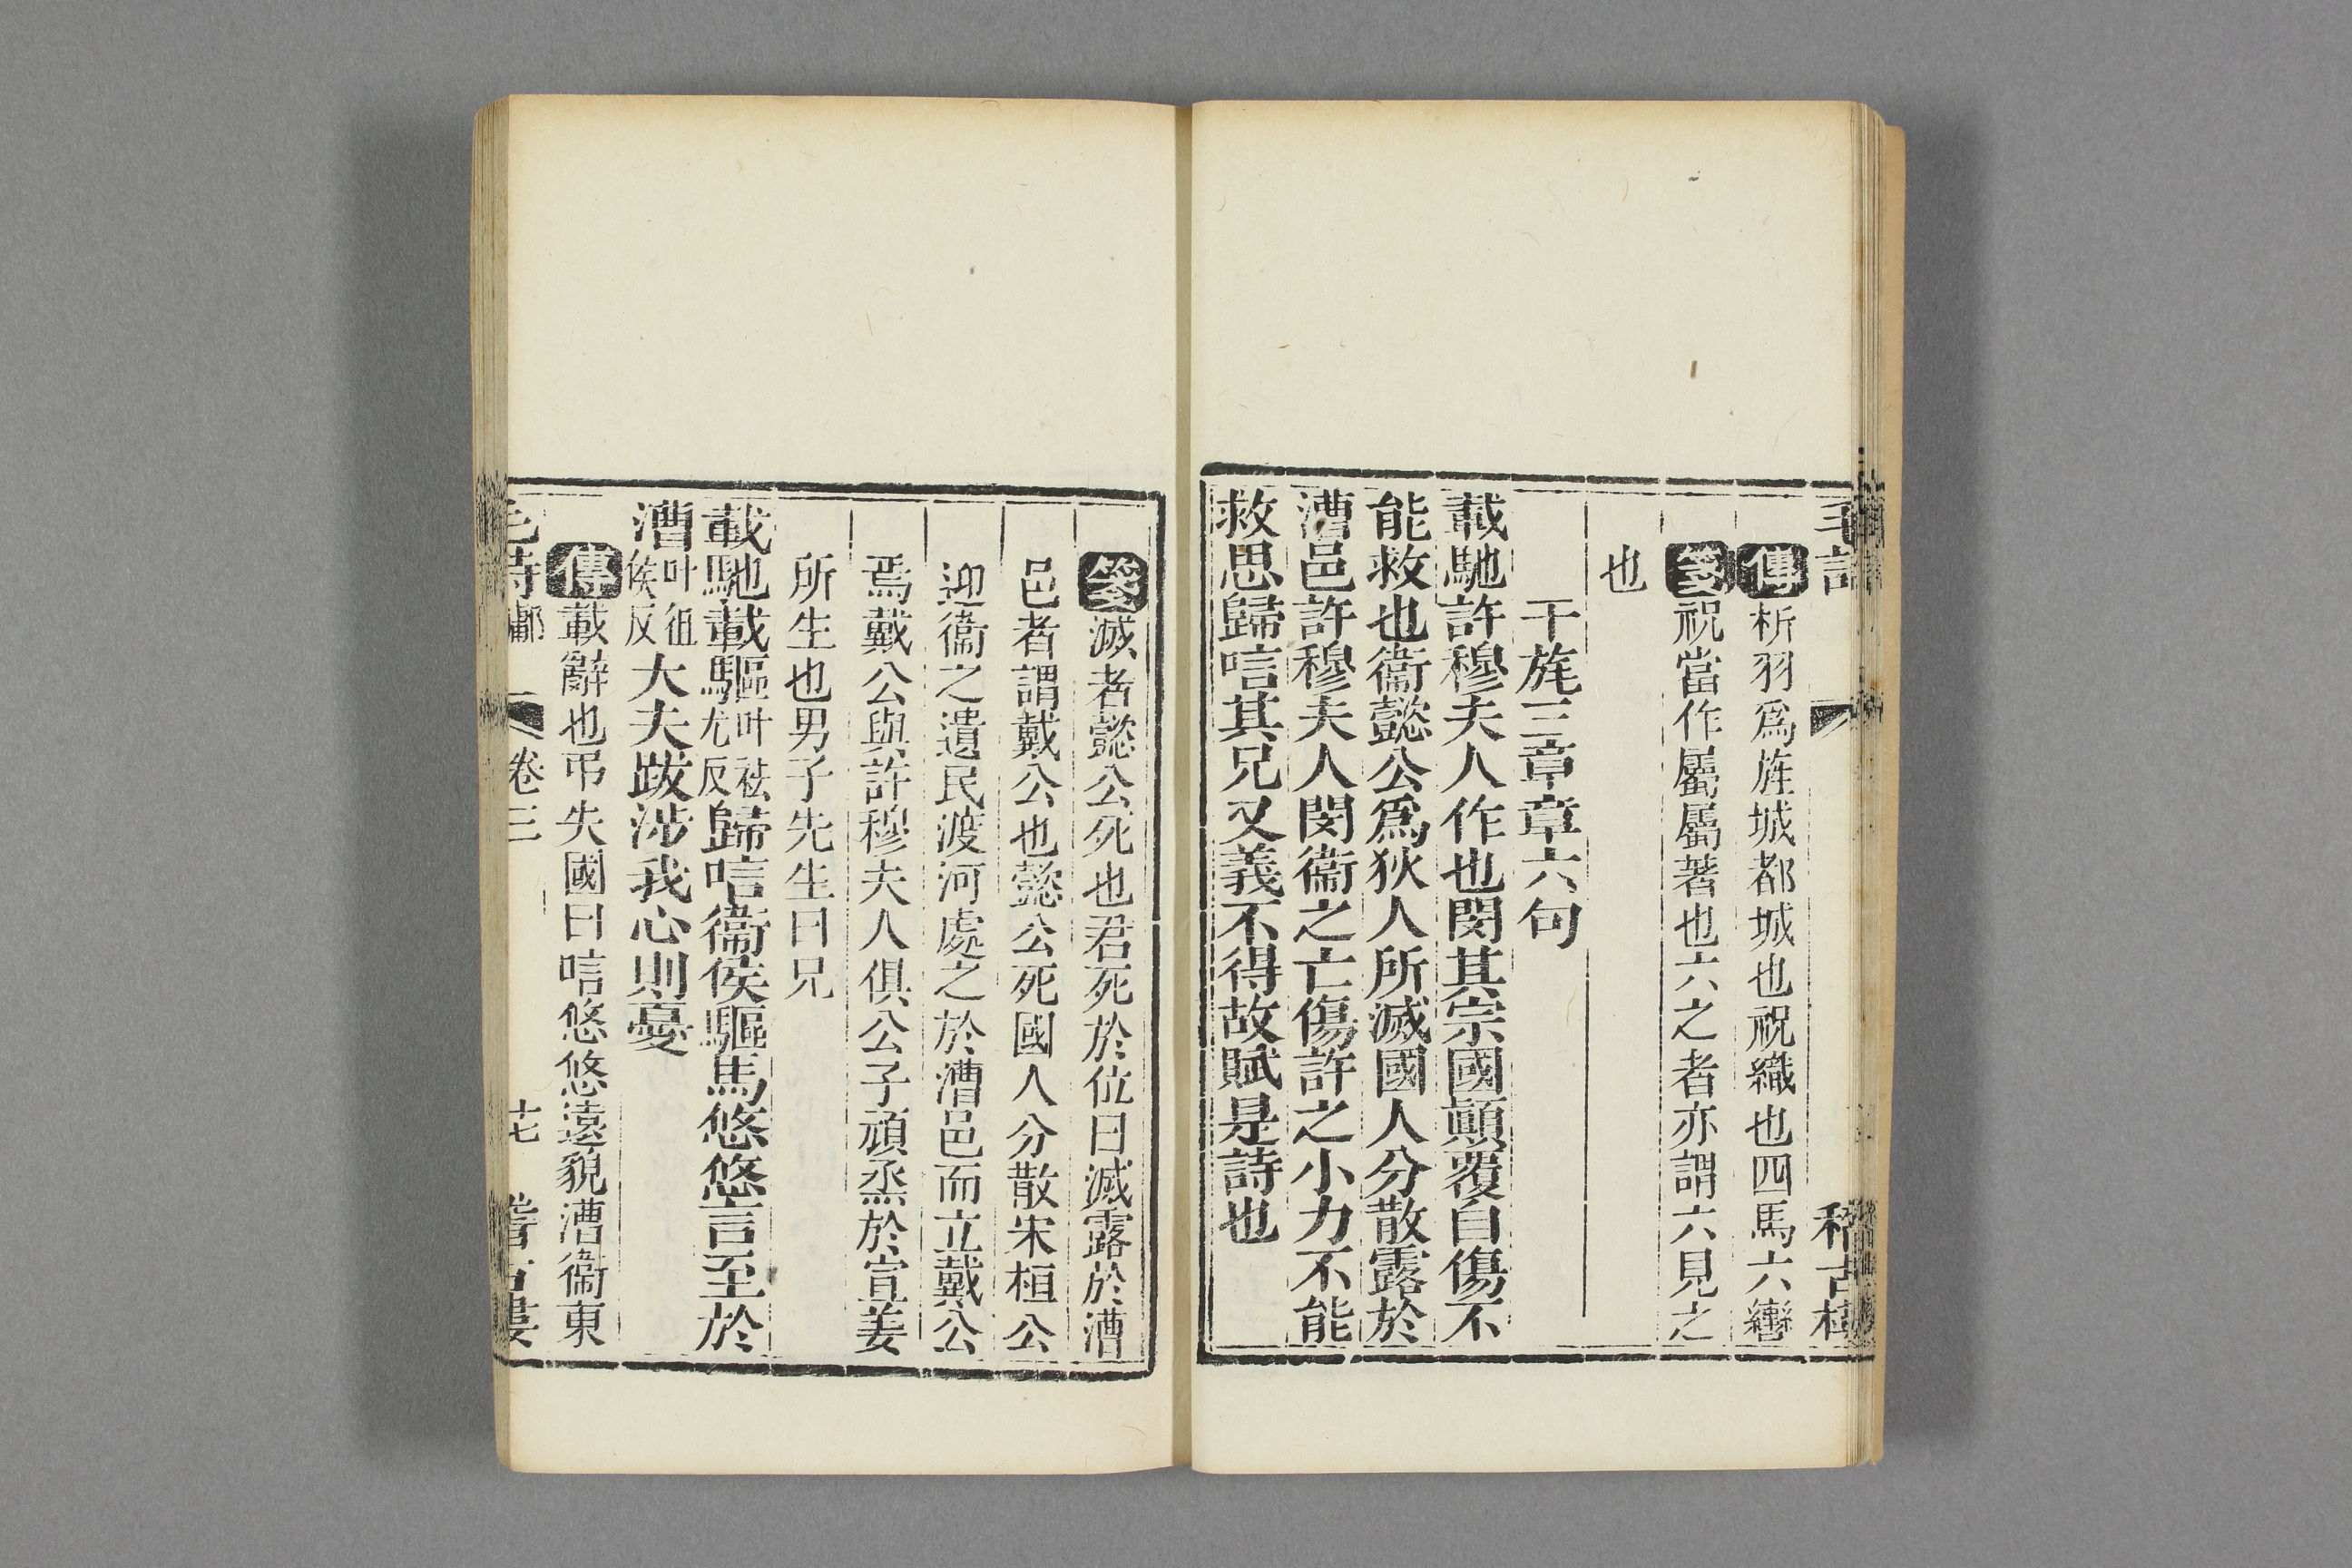 傳析羽爲旌城都城也祝織也四馬六轡
箋祝當作屬屬著也六之者亦謂六見之
也
干旄三章章六句
載馳許穆夫人作也閔其宗國顛覆自傷不
能救也衞懿公爲狄人所滅國人分散露於
漕邑許穆夫人閔衞之亡傷許之小力不能
救思歸唁其兄又義不得故賦是詩也
箋滅者懿公死也君死於位曰滅露於漕
邑者謂戴公也懿公死國人分散宋桓公
迎衞之遺民渡河處之於漕邑而立戴公
焉戴公與許穆夫人俱公子頑烝於宣姜
所生也男子先生曰兄
載馳載驅叶祛尤反歸唁衞侯驅馬悠悠言至於
漕叶徂侯反大夫跋涉我心則憂
傳載辭也弔失國曰唁悠悠遠貌漕衞東
毛詩鄘 卷三 十七